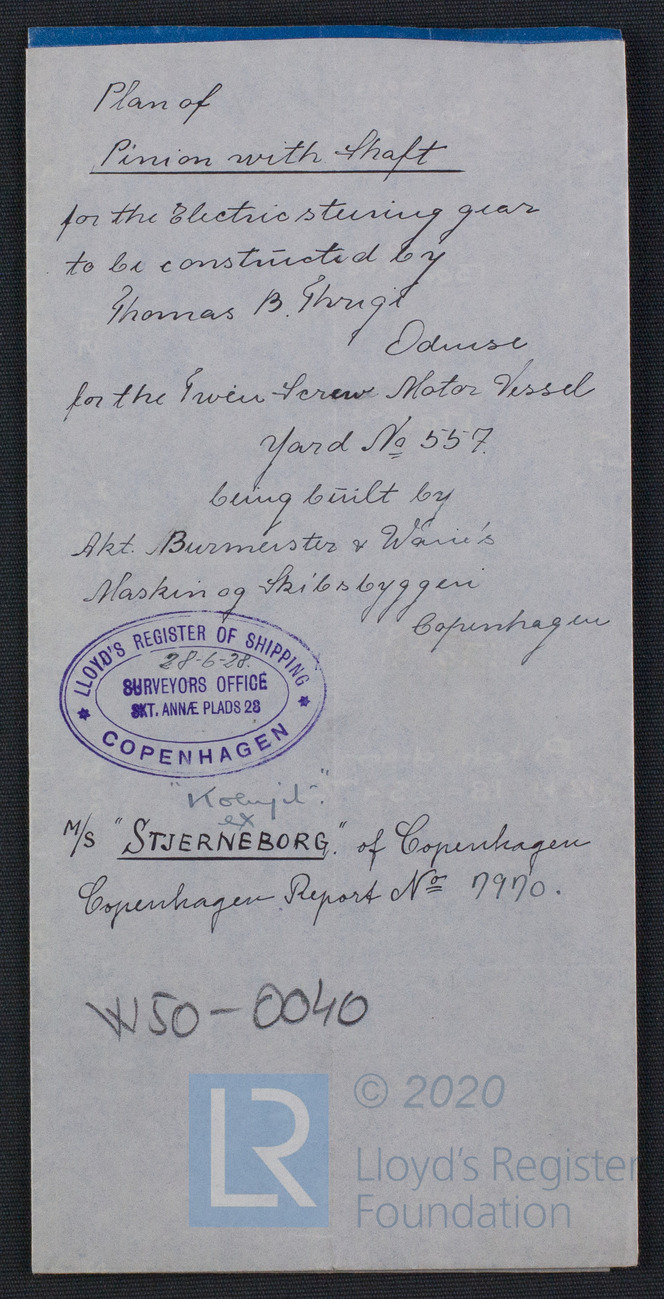 Plan of
Pinion with Shaft
for the Electric steering gear
to be constructed by
Thomas B. Thrige
Odense
for the Twin Screw Motor Vessel
Yard No 557.
being built by
Akt. Burmeister & Wain's
Maskin og Skibsbyggeri
Copenhagen
LLOYD'S REGISTER OF SHIPPING
28-6-28.
SURVEYORS OFFICE
SKT. ANNÆ PLADS 28
COPENHAGEN
ex
M/S "STJERNEBORG." of Copenhagen
Copenhagen Report No 7970.
W50-0040
LR
© 2020
Lloyd's Register
Foundation